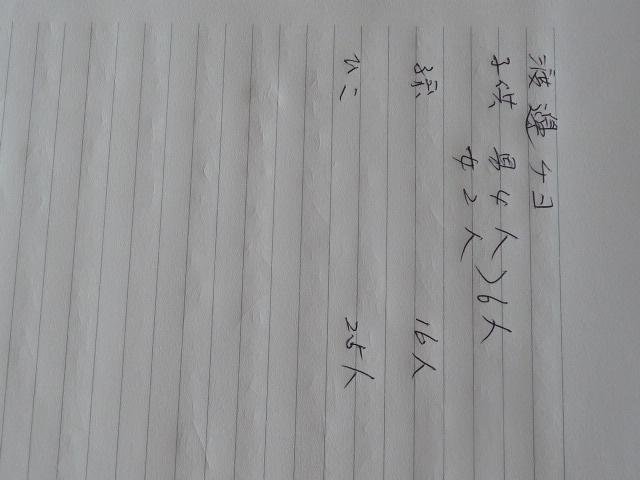 渡邊チヨ
子供 男4人 〉6人
女2人
孫 16人
ひこ 25人